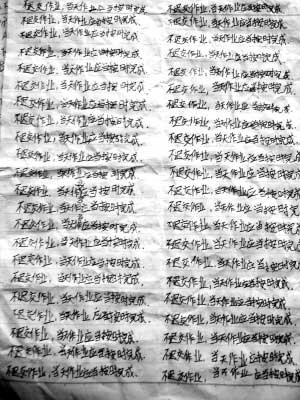 不迟交作业,当天作业应当按时完成.
不迟交作业,当天作业应当按时完成.
不迟交作业,当天作业应当按时完成.
不迟交作业,当天作业应当按时完成.
不迟交作业,当天作业应当按时完成.
不迟交作业,当天作业应当按时完成.
不迟交作业,当天作业应当按时完成.
不迟交作业,当天作业应当按时完成.
不迟交作业,当天作业应当按时完成.
不迟交作业,当天作业应当按时完成.
不迟交作业,当天作业应当按时完成.
不迟交作业,当天作业应当按时完成.
不迟交作业,当天作业应当按时完成.
不迟交作业,当天作业应当按时完成.
不迟交作业,当天作业应当按时完成.
不迟交作业,当天作业应当按时完成.
不迟交作业,当天作业应当按时完成.
不迟交作业,当天作业应当按时完成.
不迟交作业,当天作业应当按时完成.
不迟交作业,当天作业应当按时完成.
不迟交作业,当天作业应当按时完成.
不迟交作业,当天作业应当按时完成.
不迟交作业,当天作业应当按时完成.
不迟交作业,当天作业应当按时完成.
不迟交作业,当天作业应当按时完成.
不迟交作业,当天作业应当按时完成.
不迟交作业,当天作业应当按时完成.
不迟交作业,当天作业应当按时完成.
不迟交作业,当天作业应当按时完成.
不迟交作业,当天作业应当按时完成.
不迟交作业,当天作业应当按时完成.
不迟交作业,当天作业应当按时完成.
不迟交作业,当天作业应当按时完成.
不迟交作业,当天作业应当按时完成.
不迟交作业,当天作业应当按时完成.
不迟交作业,当天作业应当按时完成.
不迟交作业,当天作业应当按时完成.
不迟交作业,当天作业应当按时完成.
不迟交作业,当天作业应当按时完成.
不迟交作业,当天作业应当按时完成.
不迟交作业,当天作业应当按时完成.
不迟交作业,当天作业应当按时完成.
不迟交作业,当天作业应当按时完成.
不迟交作业,当天作业应当按时完成.